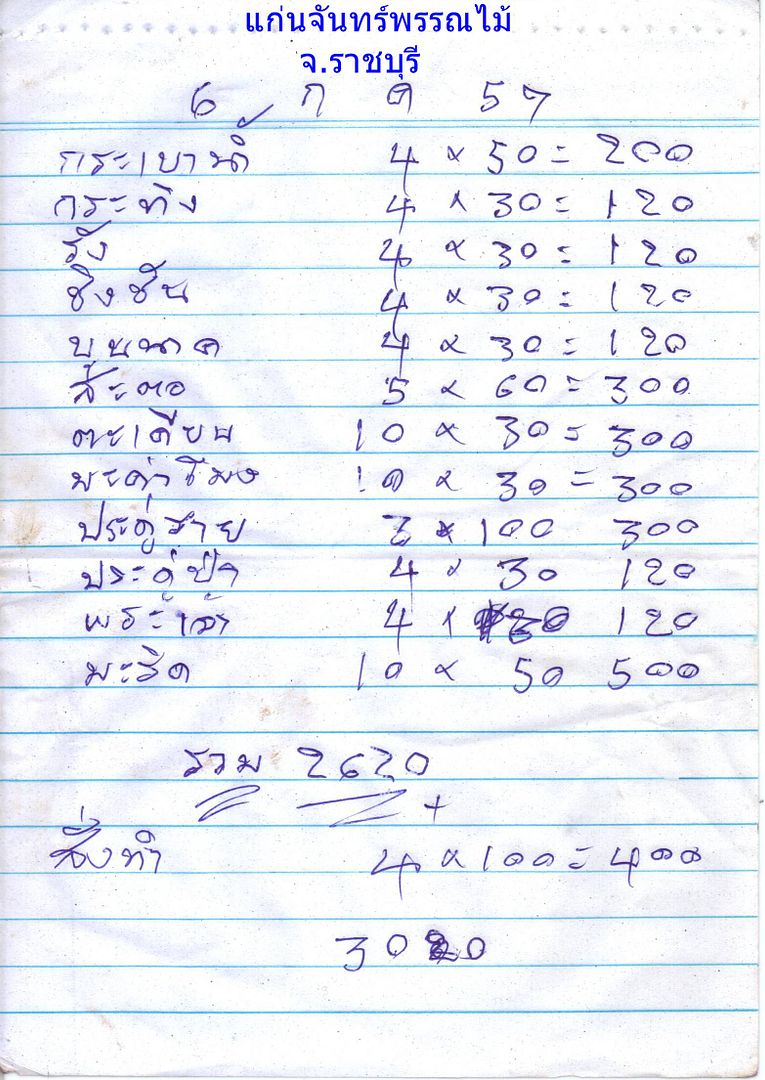 แก่นจันทร์พรรณไม้
จ.ราชบุรี
6 ก ค 57
กระเบาน้ำ 4 × 50 = 200
กระทิง 4 × 30 = 120
รัง 4 × 30 = 120
ชิงชัน 4 × 30 = 120
บุนนาค 4 × 30 = 120
สะตอ 5 × 60 = 300
ตะเคียน 10 × 30 = 300
มะค่าโมง 10 × 30 = 300
ประดู่ 3 × 100 300
ประดู่ป่า 4 × 30 120
พระเจ้า 4 × 30 120
มะริด 10 × 50 500
รวม 2620
+
สั่งทำ 4 × 100 = 400
3020